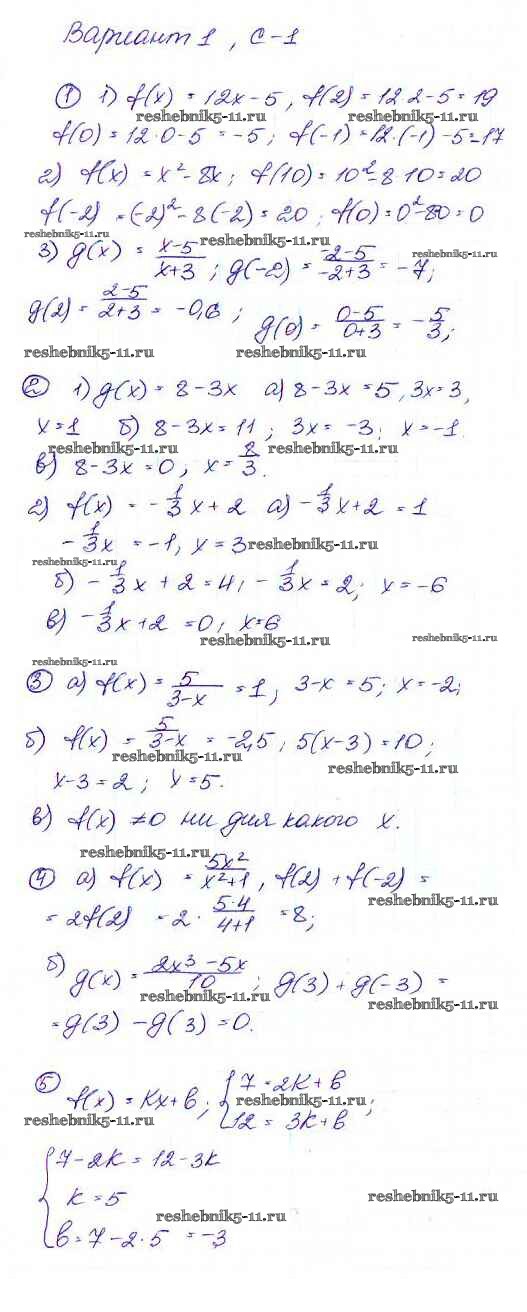 Вариант 1, С-1
① 1) f(x) = 12x - 5, f(2) = 12·2 - 5 = 19
reshebnik5-11.ru reshebnik5-11.ru
f(0) = 12·0 - 5 = -5; f(-1) = 12·(-1) - 5 = 17
2) f(x) = x² - 8x; f(10) = 10² - 8·10 = 20
f(-2) = (-2)² - 8(-2) = 20; f(0) = 0² - 80 = 0
reshebnik5-11.ru reshebnik5-11.ru
3) g(x) = (x-5)/(x+3); g(-2) = (-2-5)/(-2+3) = -7;
g(2) = (2-5)/(2+3) = -0,6; g(0) = (0-5)/(0+3) = -5/3;
reshebnik5-11.ru reshebnik5-11.ru
② 1) g(x) = 8 - 3x а) 8 - 3x = 5, 3x = 3,
x = 1 б) 8 - 3x = 11; 3x = -3; x = -1
reshebnik5-11.ru reshebnik5-11.ru
в) 8 - 3x = 0, x = 8/3.
2) f(x) = -1/3x + 2 а) -1/3x + 2 = 1
-1/3x = -1, x = 3 reshebnik5-11.ru
reshebnik5-11.ru
б) -1/3x + 2 = 4, -1/3x = 2; x = -6
в) -1/3x + 2 = 0, x = 6
reshebnik5-11.ru reshebnik5-11.ru
reshebnik5-11.ru
③ а) f(x) = 5/(3-x) = 1, 3-x = 5; x = -2;
б) f(x) = 5/(3-x) = -2,5, 5(x-3) = 10;
reshebnik5-11.ru reshebnik5-11.ru
x-3 = 2; x = 5.
в) f(x) ≠ 0 ни для какого x.
reshebnik5-11.ru
④ а) f(x) = 5x²/(x²+1), f(2) + f(-2) =
= 2f(2) = 2·(5·4)/(4+1) = 8;
reshebnik5-11.ru
б) g(x) = (2x³-5x)/10; g(3) + g(-3) =
reshebnik5-11.ru reshebnik5-11.ru
= g(3) - g(3) = 0.
⑤ f(x) = Kx + b; { 7 = 2K + b
12 = 3K + b;
reshebnik5-11.ru reshebnik5-11.ru
{ 7 - 2K = 12 - 3K
K = 5
reshebnik5-11.ru
reshebnik5-11.ru
b = 7 - 2·5 = -3